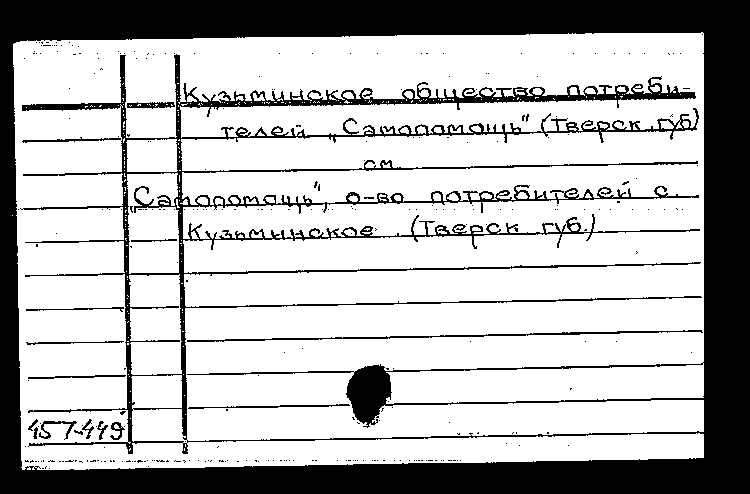 Кузьминское общество потреби-
телей „Самопомощь" (Тверск. губ)
см.
„Самопомощь", о-во потребителей с.
Кузьминское. (Тверск губ.)
457-449